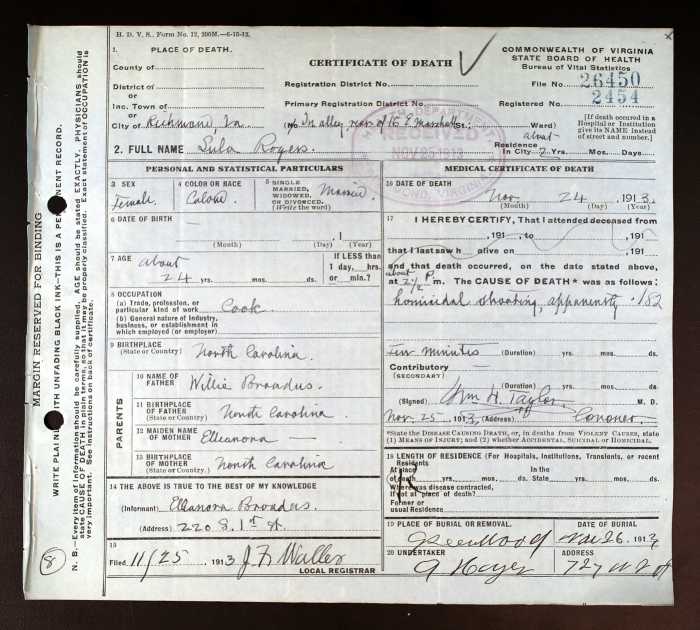 H. D. V. S., Form No. 12, 200M.—6-18-12.
1. PLACE OF DEATH.
CERTIFICATE OF DEATH
COMMONWEALTH OF VIRGINIA
STATE BOARD OF HEALTH
Bureau of Vital Statistics
County of
District of
or
Inc. Town of
or
City of Richmond Va
Registration District No.
File No. 26450
Primary Registration District No.
Registered No. 2454
No In alley, rear of 16 E Marshall St.; Ward)
[If death occurred in a
Hospital or Institution
give its NAME instead of
street and number.]
2. FULL NAME Lula Rogers.
Residence about
In City 2 Yrs. Mos. Days
NOV 25 1913
PERSONAL AND STATISTICAL PARTICULARS
3 SEX
Female
4 COLOR OR RACE
Colored
5 SINGLE
MARRIED,
WIDOWED,
OR DIVORCED.
(Write the word)
Married
6 DATE OF BIRTH
(Month) (Day) (Year)
7 AGE about
24 yrs. mos. ds.
If LESS than
1 day, hrs.
or min.?
8 OCCUPATION
(a) Trade, profession, or
particular kind of work Cook
(b) General nature of Industry,
business, or establishment in
which employed (or employer)
9 BIRTHPLACE
(State or Country) North Carolina.
PARENTS
10 NAME OF
FATHER Willie Broadus
11 BIRTHPLACE
OF FATHER
(State or Country) North Carolina
12 MAIDEN NAME
OF MOTHER Elleanora —
13 BIRTHPLACE
OF MOTHER
(State or Country) North Carolina
14 THE ABOVE IS TRUE TO THE BEST OF MY KNOWLEDGE
(Informant) Elleanora Broadus.
(Address) 220 S. 1st St.
15
Filed 11/25 1913 J F Waller
LOCAL REGISTRAR
MEDICAL CERTIFICATE OF DEATH
16 DATE OF DEATH
Nov. 24, 1913.
(Month) (Day) (Year)
17 I HEREBY CERTIFY, That I attended deceased from
, 191 , to , 191
that I last saw h alive on , 191
and that death occurred, on the date stated above,
about
at 2½ P m. The CAUSE OF DEATH* was as follows:
homicidal shooting, apparently. 182
Few minutes (Duration) yrs. mos. ds.
Contributory
(SECONDARY)
(Duration) yrs. mos. ds.
(Signed) Wm H. Taylor M. D.
Nov. 25 1913 (Address) Coroner.
*State the DISEASE CAUSING DEATH, or, in deaths from VIOLENT CAUSES, state
(1) MEANS OF INJURY; and (2) whether ACCIDENTAL, SUICIDAL or HOMICIDAL.
18 LENGTH OF RESIDENCE (For Hospitals, Institutions, Transients, or recent
Residents
At place In the
of death yrs. mos. ds. State yrs. mos. ds.
Where was disease contracted,
if not at place of death?
Former or
usual Residence
19 PLACE OF BURIAL OR REMOVAL.
DATE OF BURIAL
26, 1913
20 UNDERTAKER
A Hayes
ADDRESS
727 N 2 St
MARGIN RESERVED FOR BINDING
WRITE PLAINLY WITH UNFADING BLACK INK—THIS IS A PERMANENT RECORD.
N. B.—Every item of information should be carefully supplied. AGE should be stated EXACTLY. PHYSICIANS should
state CAUSE OF DEATH in plain terms, so that it may be properly classified. Exact statement of OCCUPATION is
very important. See instructions on back of certificate.
8